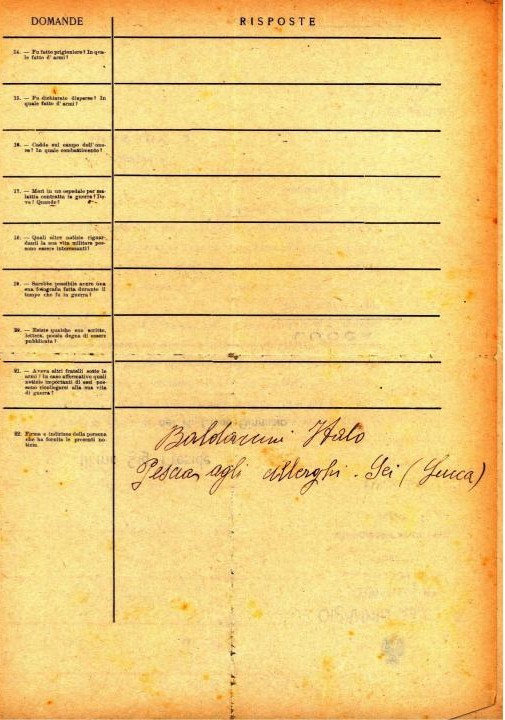 DOMANDE
RISPOSTE
14. — Fu fatto prigioniero? In qua-
le fatto d'armi?
15. — Fu dichiarato disperso? In
quale fatto d'armi?
16. — Cadde sul campo dell'ono-
re? In quale combattimento?
17. — Morì in un ospedale per ma-
lattia contratta in guerra? Do-
ve? Quando?
18. — Quali altre notizie riguar-
danti la sua vita militare pos-
sono essere interessanti?
19. — Sarebbe possibile avere una
sua fotografia fatta durante il
tempo che fu in guerra?
20. — Esiste qualche suo scritto,
lettera, poesia degna di essere
pubblicata?
21. — Aveva altri fratelli sotto le
armi? In caso affermativo quali
notizie importanti di essi pos-
sono ricollegarsi alla sua vita
di guerra?
22. Firma e indirizzo della persona
che ha fornito le presenti no-
tizie.
Italo
Pescia agli (Lucca)